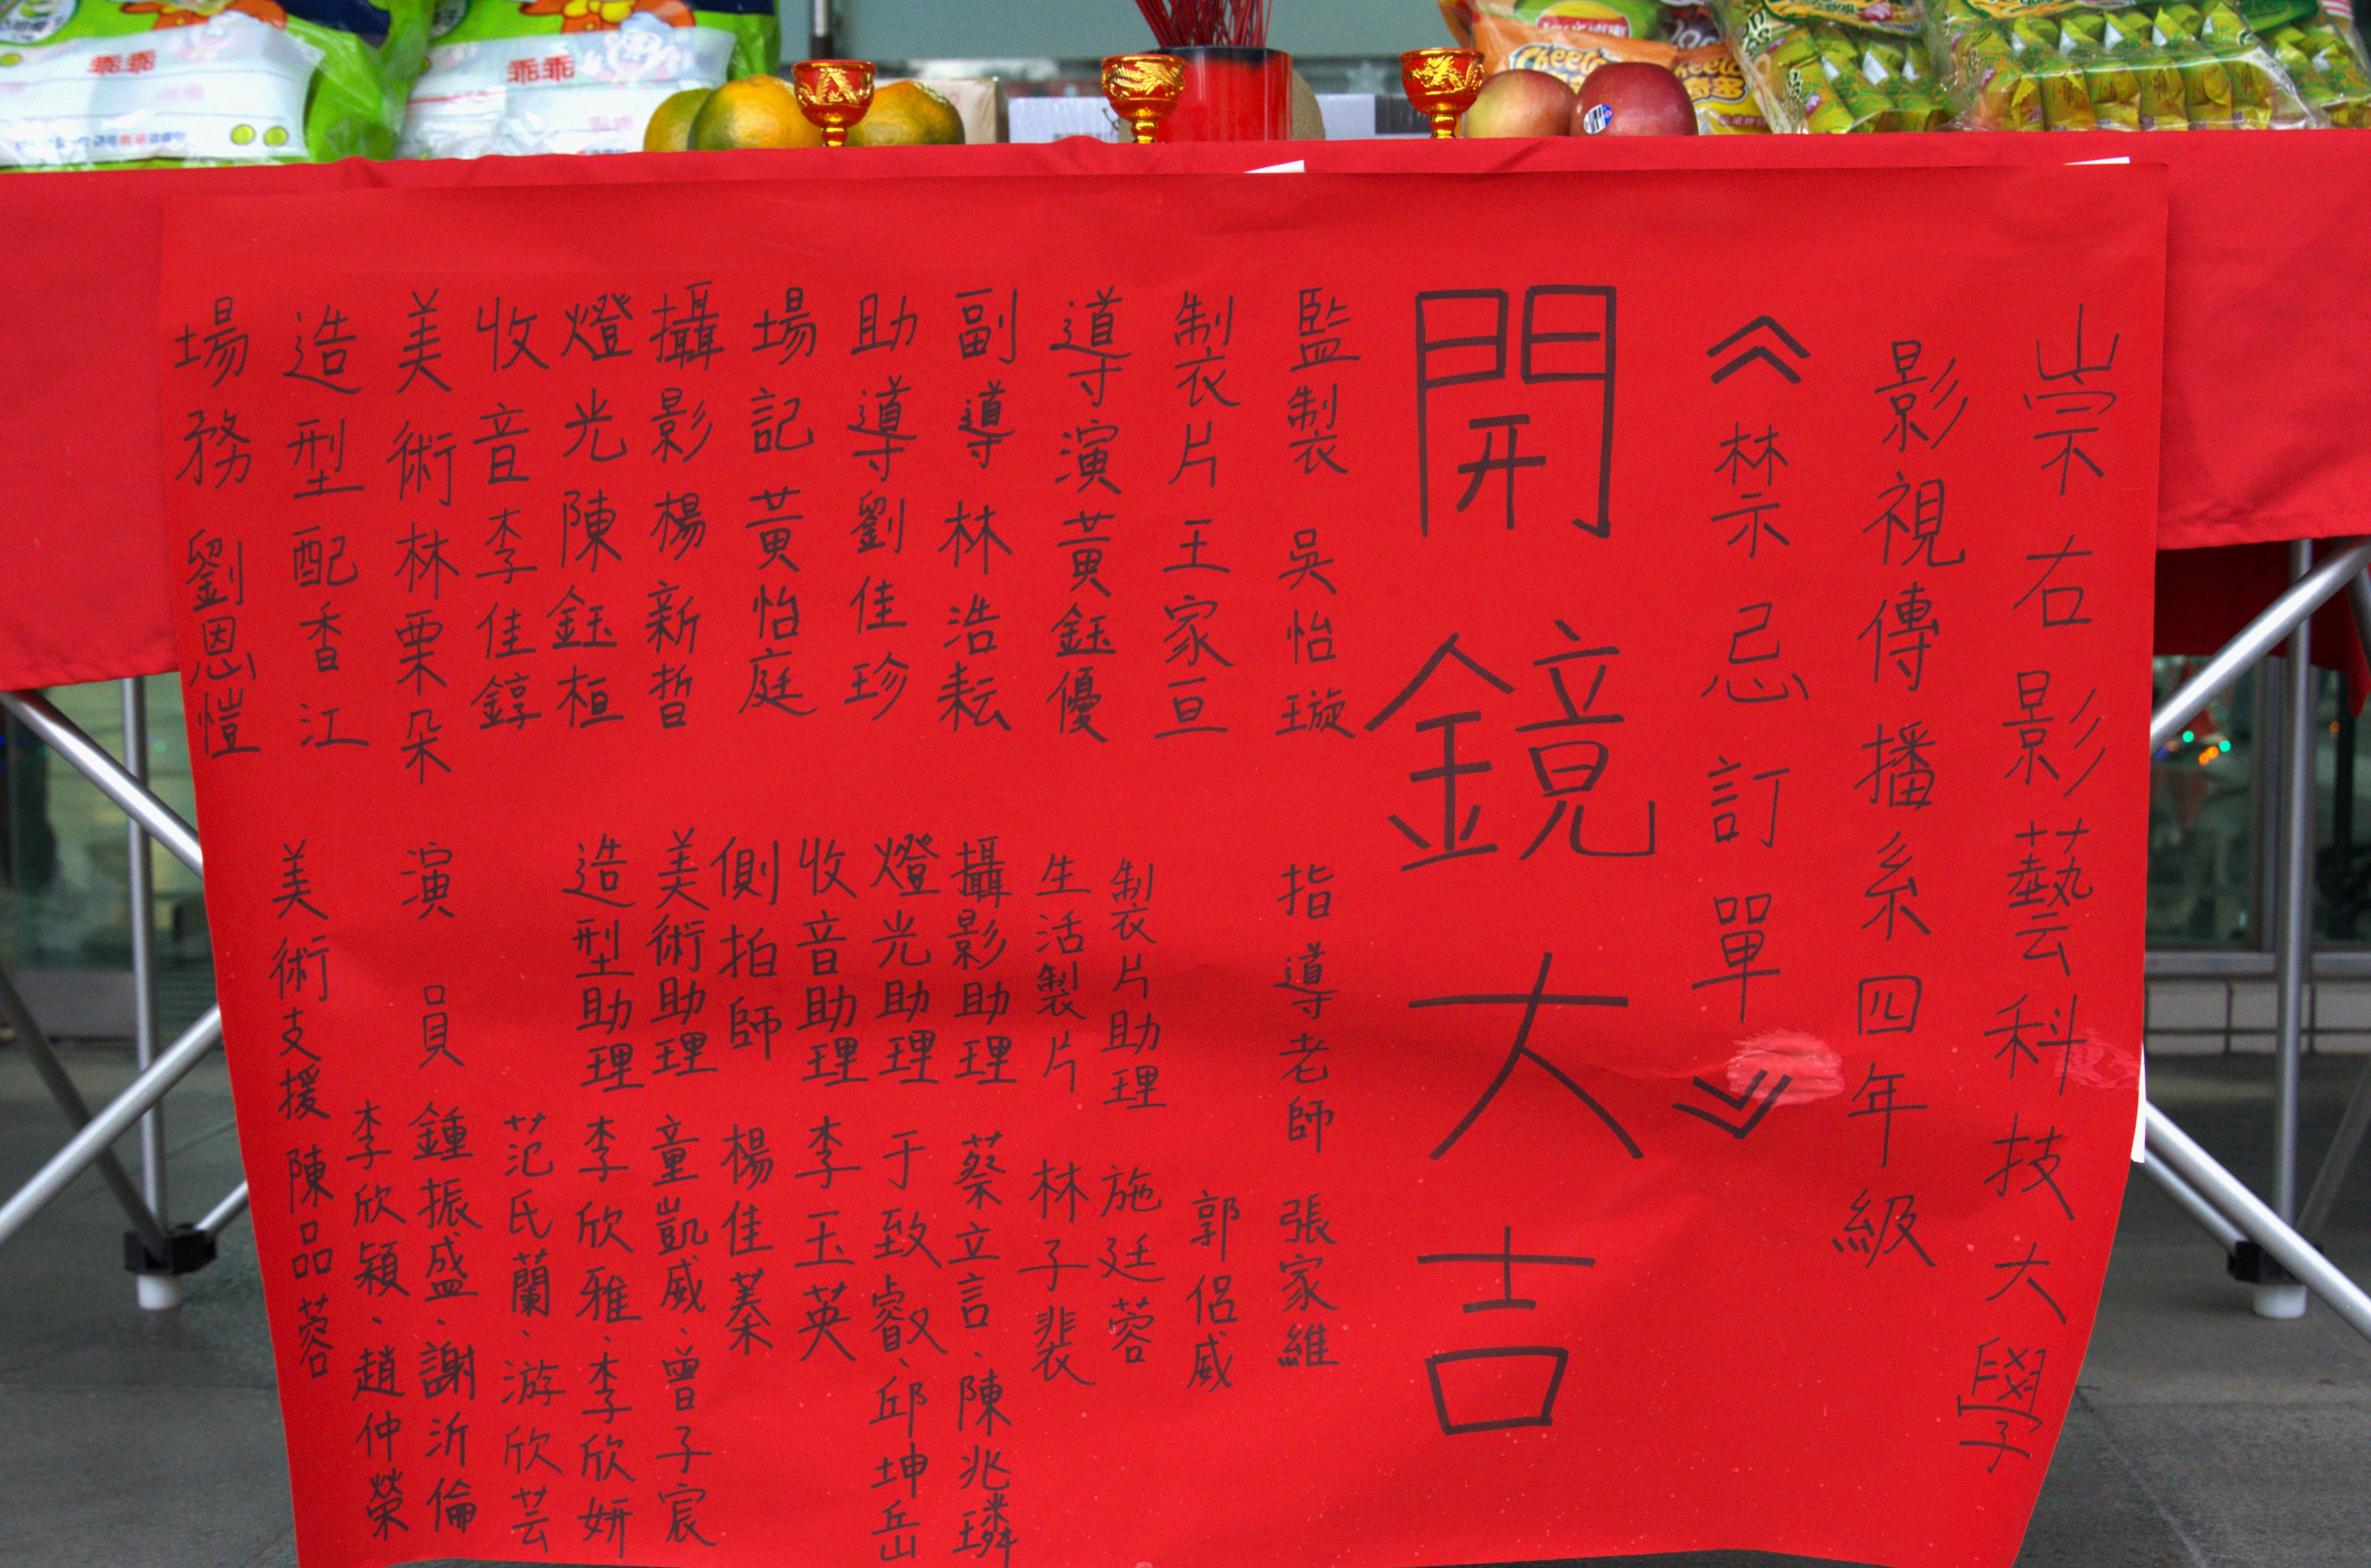 崇右影藝科技大學
影視傳播系四年級
《禁忌訂單》
開鏡大吉
監製 吳怡璇
指導老師 張家維
郭侶威
製片 王家亘
製片助理 施廷蓉
導演 黃鈺優
生活製片 林子裴
副導 林浩耘
攝影助理 蔡立言、陳兆璘
助導 劉佳珍
燈光助理 于致叡、邱坤岳
場記 黃怡庭
收音助理 李玉英
攝影 楊新哲
側拍師 楊佳蓁
燈光 陳鈺桓
美術助理 童凱威、曾子宸
收音 李佳錞
造型助理 李欣雅、李欣妍
范氏蘭、游欣芸
美術 林栗朵
演員 鍾振盛、謝沂倫
李欣穎、趙仲榮
造型 配香江
美術支援 陳品蓉
場務 劉恩愷
乖乖
乖乖
Cheetos